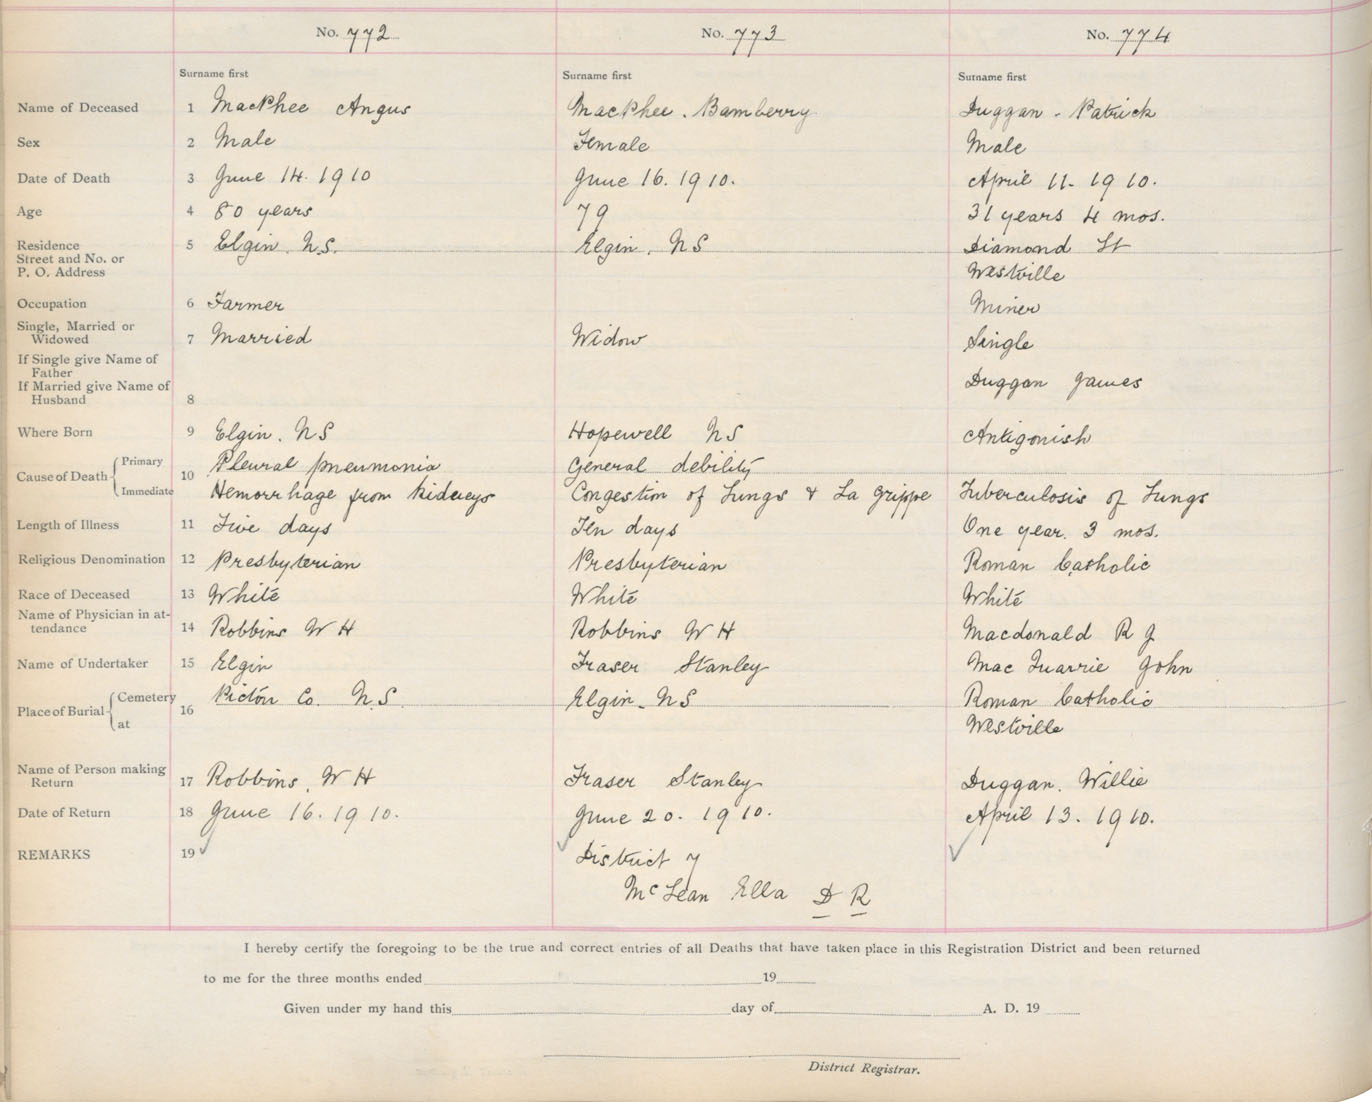 No. 772 No. 773 No. 774
Surname first Surname first Surname first
Name of Deceased 1 MacPhee Angus MacPhee. Bamberry Duggan. Patrick
Sex 2 Male Female Male
Date of Death 3 June 14. 1910 June 16. 1910. April 11. 1910.
Age 4 80 years 79 31 years 4 mos.
Residence 5 Elgin. N.S. Elgin. NS Diamond St
Street and No. or
P. O. Address Westville
Occupation 6 Farmer Miner
Single, Married or
Widowed 7 Married Widow Single
If Single give Name of
Father
If Married give Name of Duggan James
Husband 8
Where Born 9 Elgin. NS Hopewell NS Antigonish
Cause of Death Primary 10 Pleural pneumonia General debility
Immediate Hemorrhage from kidneys Congestion of Lungs & La Grippe Tuberculosis of Lungs
Length of Illness 11 Five days Ten days One year. 3 mos.
Religious Denomination 12 Presbyterian Presbyterian Roman Catholic
Race of Deceased 13 White White White
Name of Physician in at-
tendance 14 Robbins W H Robbins W H Macdonald R J
Name of Undertaker 15 Elgin Fraser Stanley Mac Quarrie John
Place of Burial Cemetery 16 Pictou Co. N.S. Elgin. NS Roman Catholic
at Westville
Name of Person making
Return 17 Robbins. W H Fraser Stanley Duggan. Willie
Date of Return 18 June 16. 1910. June 20. 1910. April 13. 1910.
REMARKS 19 District 7
McLean Ella D R
I hereby certify the foregoing to be the true and correct entries of all Deaths that have taken place in this Registration District and been returned
to me for the three months ended 19
Given under my hand this day of A. D. 19
District Registrar.